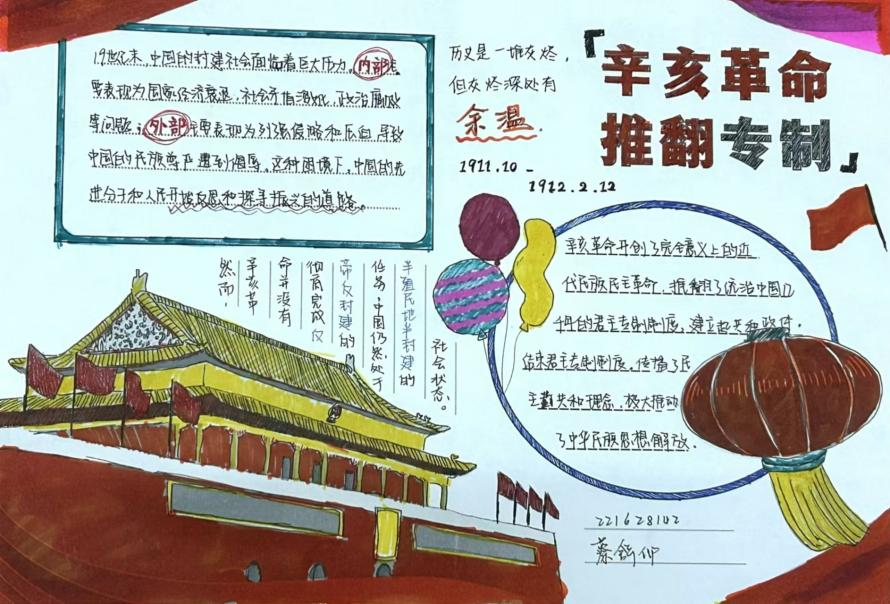 「辛亥革命
推翻专制」
19世纪末，中国的封建社会面临着巨大压力。内部主
要表现为国家经济衰退、社会矛盾激化、政治腐败
等问题；外部主要表现为列强侵略和压迫，导致
中国的民族尊严遭到侮辱。这种困境下，中国的先
进分子和人民开始反思和探寻振兴的道路。
历史是一堆灰烬，
但灰烬深处有
余温.
1911.10-
1912.2.12
辛亥革命开创了完全意义上的近
代民族民主革命，推翻了统治中国几
千年的君主专制制度，建立起共和政体，
结束君主专制制度，传播了民
主共和理念，极大推动
了中华民族思想解放.
然而，
辛亥革
命并没有
彻底完成反
帝反封建的
任务，中国仍然处于
半殖民地半封建的
社会状态。
221628142